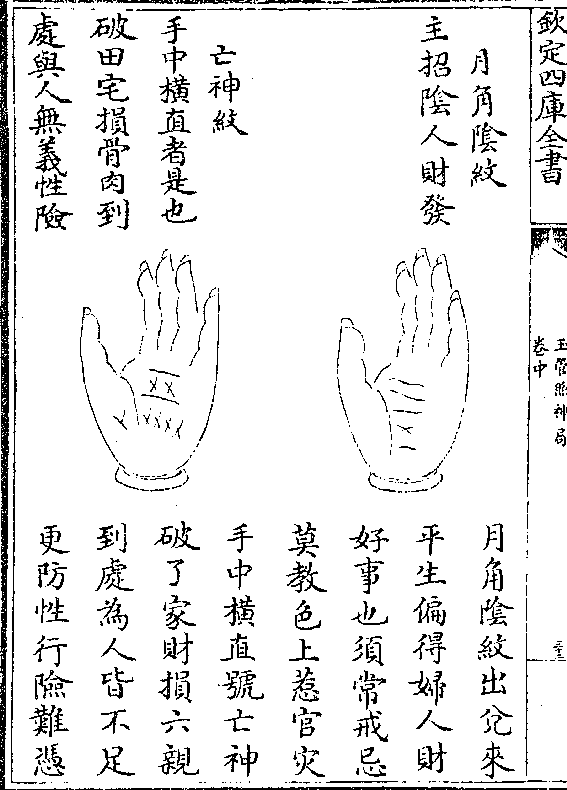 欽定四庫全書
玉管照神局
卷中
月角陰紋
主招陰人財發
亡神紋
手中橫直者是也
破田宅損骨肉到
處與人無義性險
月角陰紋出兊來
平生偏得婦人財
好事也須常戒忌
莫教色上惹官灾
手中橫直號亡神
破了家財損六親
到處為人皆不足
更防性行險難憑